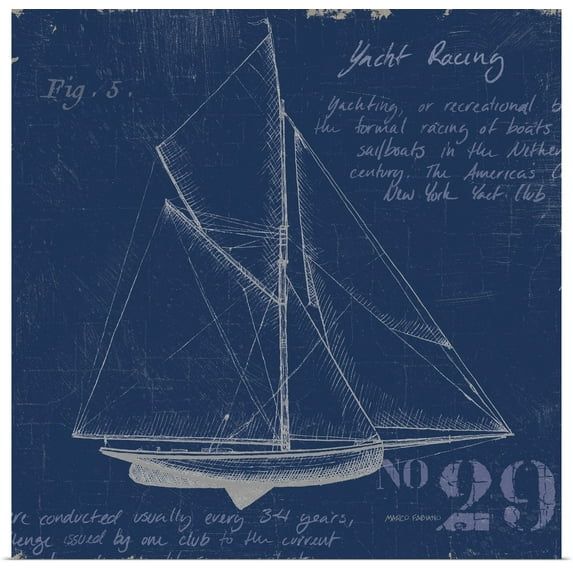 Fig. 5.
Yacht Racing
Yachting, or recreational b
the formal racing of boats
sailboats in the Nether
century. The Americas C
New York Yact Club
NO 29
MARCO FABIANO
re conducted usually every 3-4 years,
lenge issued by one club to the current